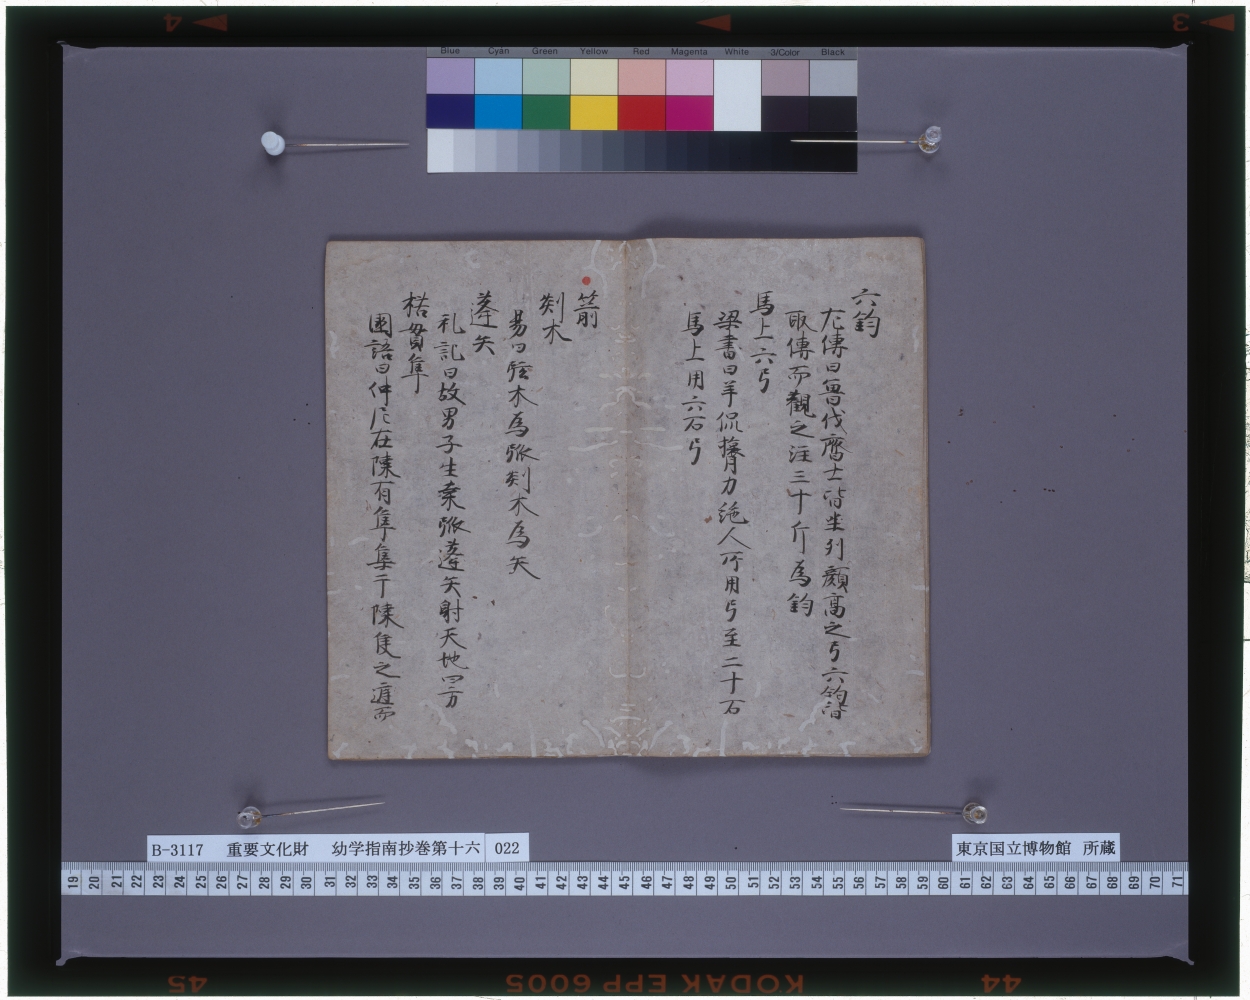 4
3
Blue Cyan Green Yellow Red Magenta White 3/Color Black
六鈞
左傳曰魯伐齊士皆坐列顔高之弓六鈞皆
取傳而觀之注三十斤為鈞
馬上六弓
梁書曰羊侃膂力絶人所用弓至二十石
馬上用六石弓
箭
剡木
易曰弦木為弧剡木為矢
蓬矢
礼記曰故男子生桒弧蓬矢射天地四方
楛貫隼
國語曰仲尼在陳有隼集于陳侯之庭而
B-3117 重要文化財 幼学指南抄巻第十六 022
東京国立博物館 所蔵
19 20 21 22 23 24 25 26 27 28 29 30 31 32 33 34 35 36 37 38 39 40 41 42 43 44 45 46 47 48 49 50 51 52 53 54 55 56 57 58 59 60 61 62 63 64 65 66 67 68 69 70 71
45
KODAK EPP 6005
44